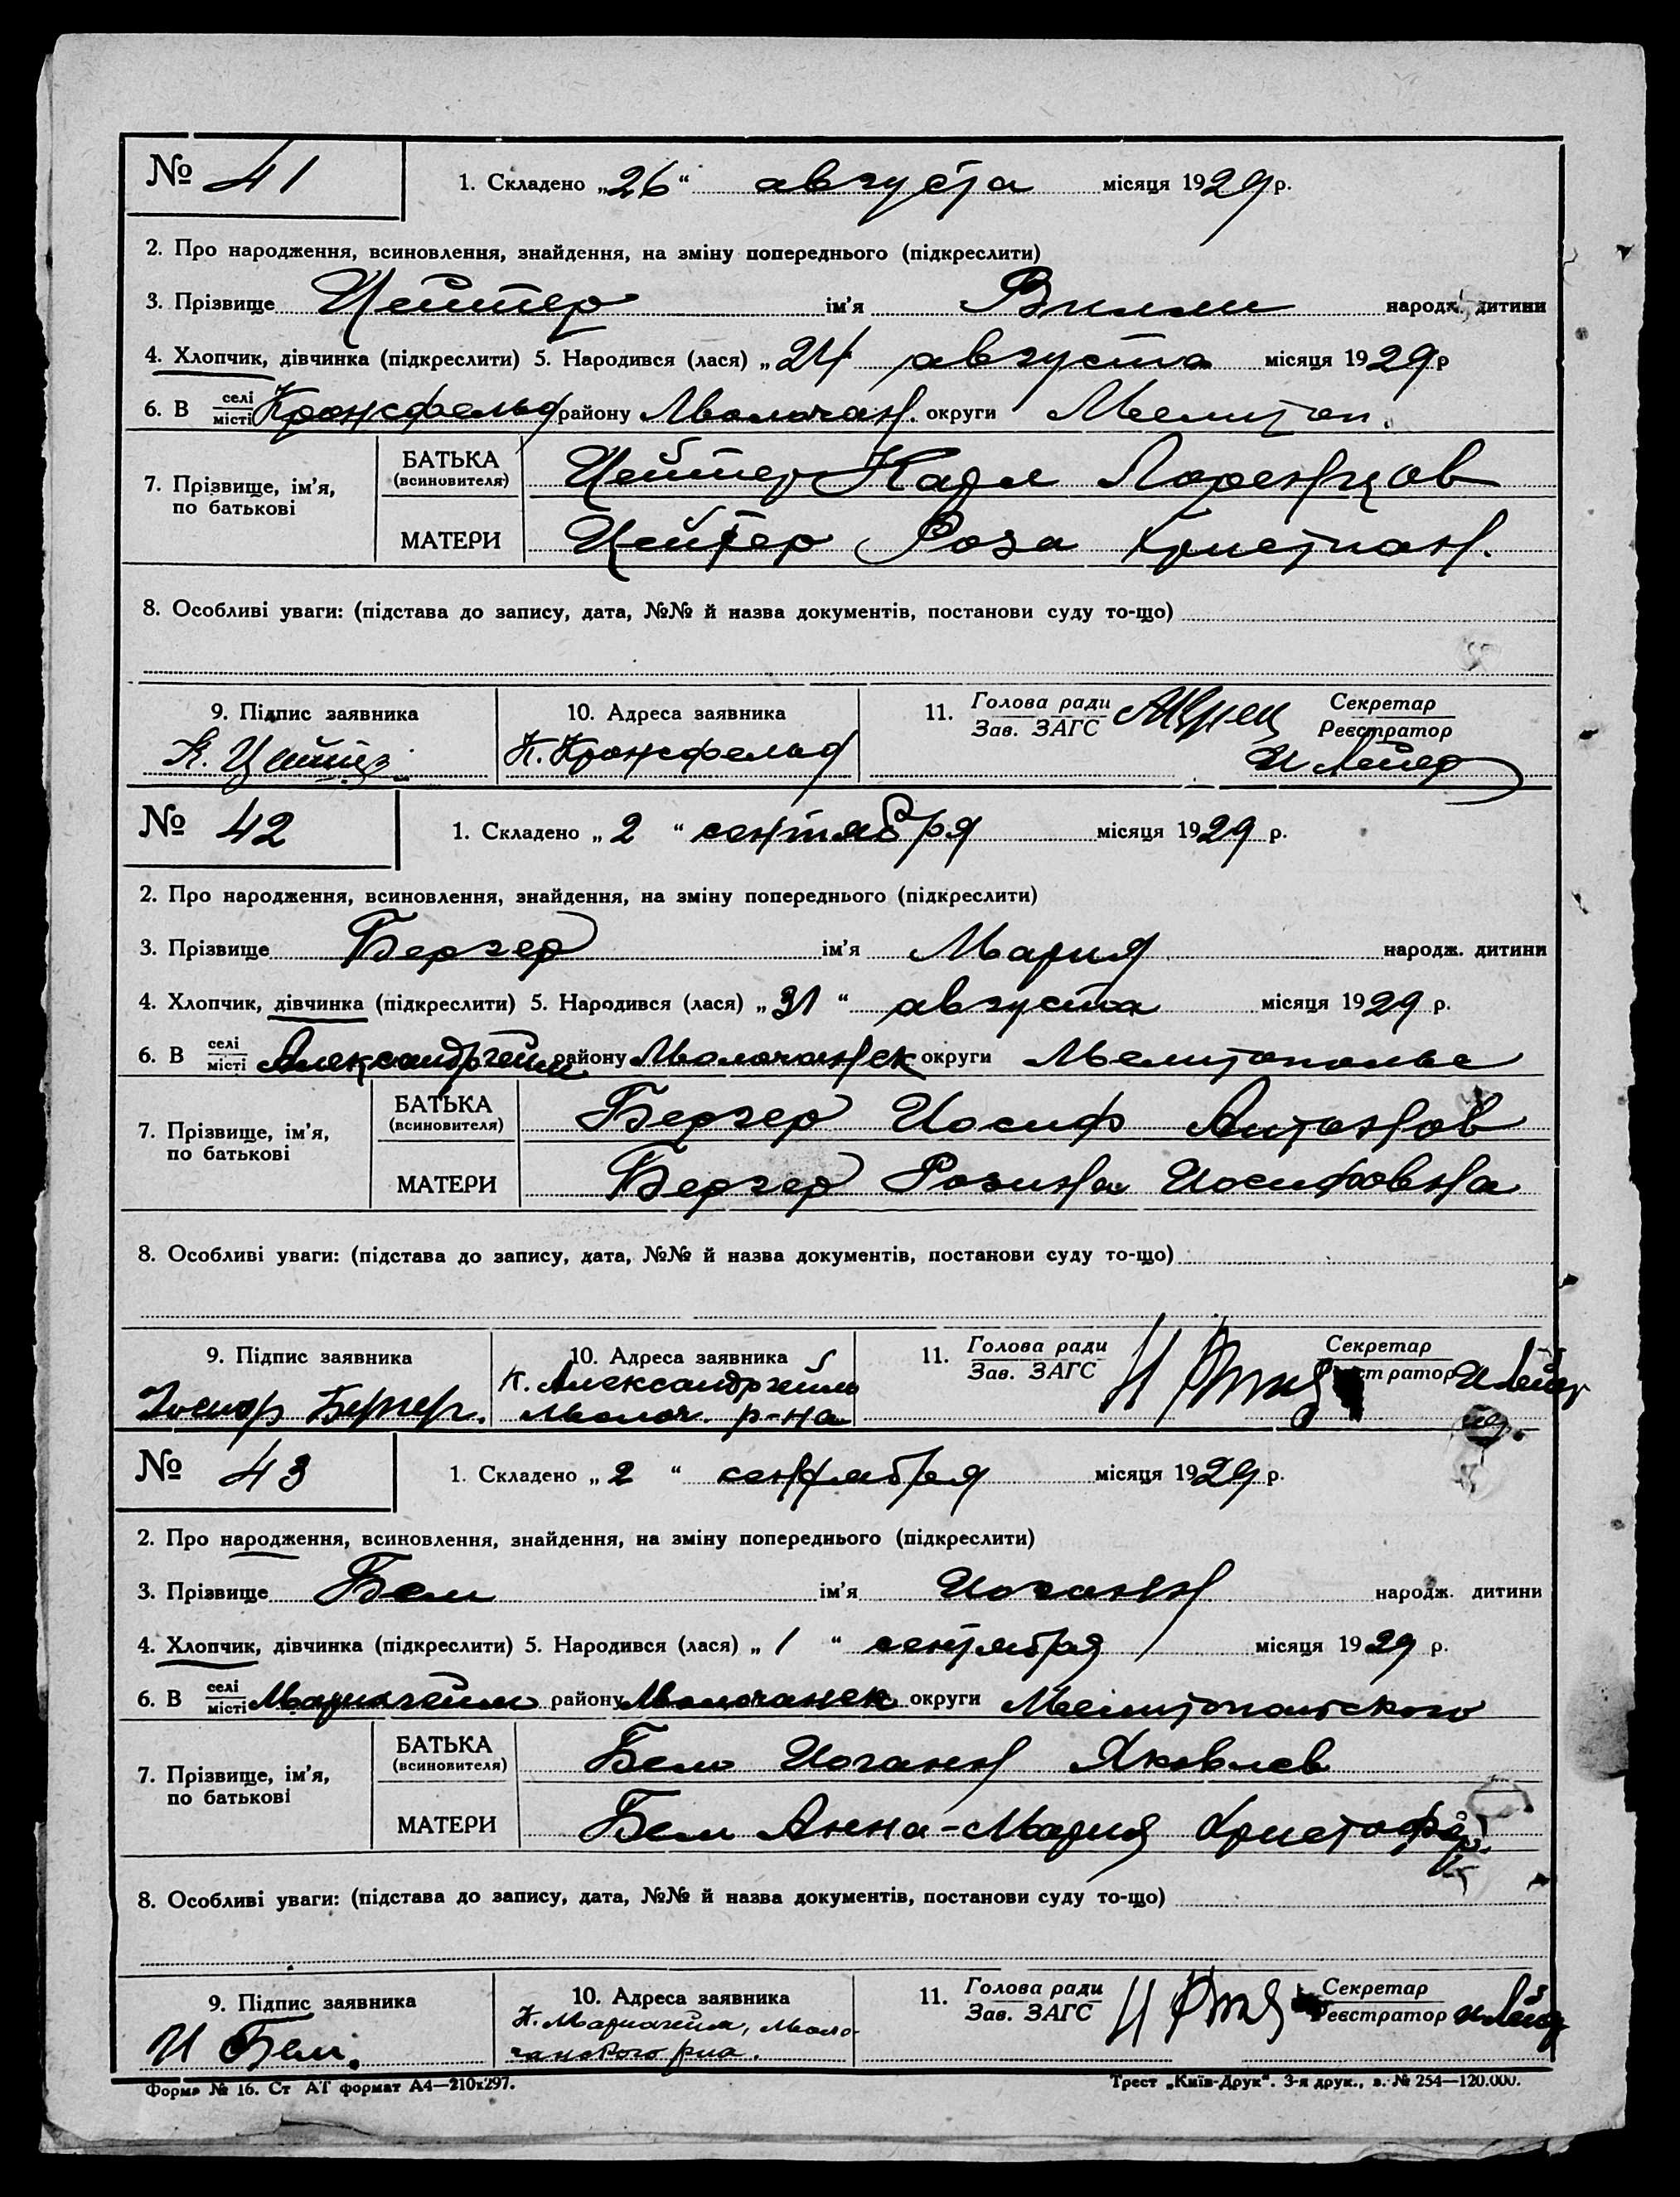 № 41 1. Складено „26“ августа місяця 1929 р.
2. Про народження, всиновлення, знайдення, на зміну попереднього (підкреслити)
3. Прізвище Цейтер ім'я Вилли народж. дитини
4. Хлопчик, дівчинка (підкреслити) 5. Народився (лася) „24 августа місяця 1929 р
6. В селі місті Кронсфельд району Молочан. округи Мелитоп.
7. Прізвище, ім'я, по батькові
БАТЬКА (всиновителя) Цейтер Карл Лоренцов
МАТЕРИ Цейтер Роза Христиан.
8. Особливі уваги: (підстава до запису, дата, №№ й назва документів, постанови суду то-що)
9. Підпис заявника 10. Адреса заявника 11. Голова ради Зав. ЗАГС Секретар Реєстратор
К. Цейтер К. Кронсфельд
№ 42 1. Складено „2“ сентября місяця 1929 р.
2. Про народження, всиновлення, знайдення, на зміну попереднього (підкреслити)
3. Прізвище Бергер ім'я Мария народж. дитини
4. Хлопчик, дівчинка (підкреслити) 5. Народився (лася) „31“ августа місяця 1929 р.
6. В селі місті Александргейм району Молочанск округи Мелитополье
7. Прізвище, ім'я, по батькові
БАТЬКА (всиновителя) Бергер Иосиф Антонов
МАТЕРИ Бергер Розина Иосифовна
8. Особливі уваги: (підстава до запису, дата, №№ й назва документів, постанови суду то-що)
9. Підпис заявника 10. Адреса заявника 11. Голова ради Зав. ЗАГС Секретар
Иосиф Бергер. К. Александргейм
Молоч. р-на
№ 43 1. Складено „2“ сентября місяця 1929 р.
2. Про народження, всиновлення, знайдення, на зміну попереднього (підкреслити)
3. Прізвище Бем ім'я Иоганн народж. дитини
4. Хлопчик, дівчинка (підкреслити) 5. Народився (лася) „1“ сентября місяця 1929 р.
6. В селі місті Мариагейм району Молочанск округи Мелитопольского
7. Прізвище, ім'я, по батькові
БАТЬКА (всиновителя) Бем Иоганн Яковлев
МАТЕРИ Бем Анна-Мария Христофор.
8. Особливі уваги: (підстава до запису, дата, №№ й назва документів, постанови суду то-що)
9. Підпис заявника 10. Адреса заявника 11. Голова ради Зав. ЗАГС Секретар Реєстратор
И Бем. К. Мариагейм, Моло-
чанского р-на.
Форма № 16. Ст АТ формат А4—210х297. Трест „Київ-Друк“. 3-я друк., з. № 254—120.000.